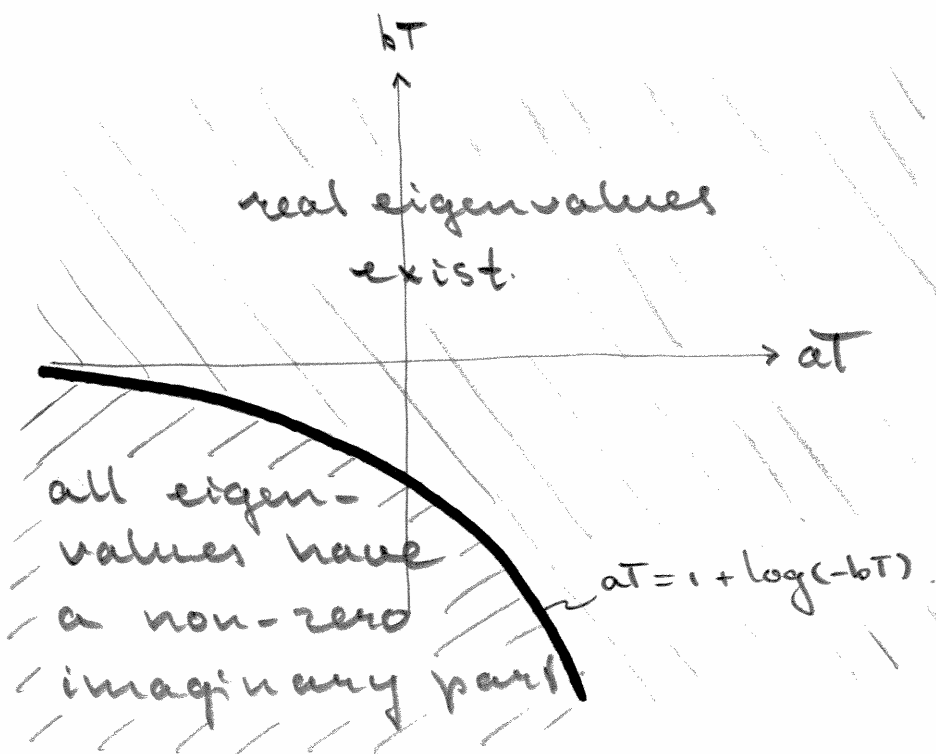 bT
real eigenvalues
exist.
aT
all eigen-
values have
a non-zero
imaginary part
aT = 1 + log(-bT)